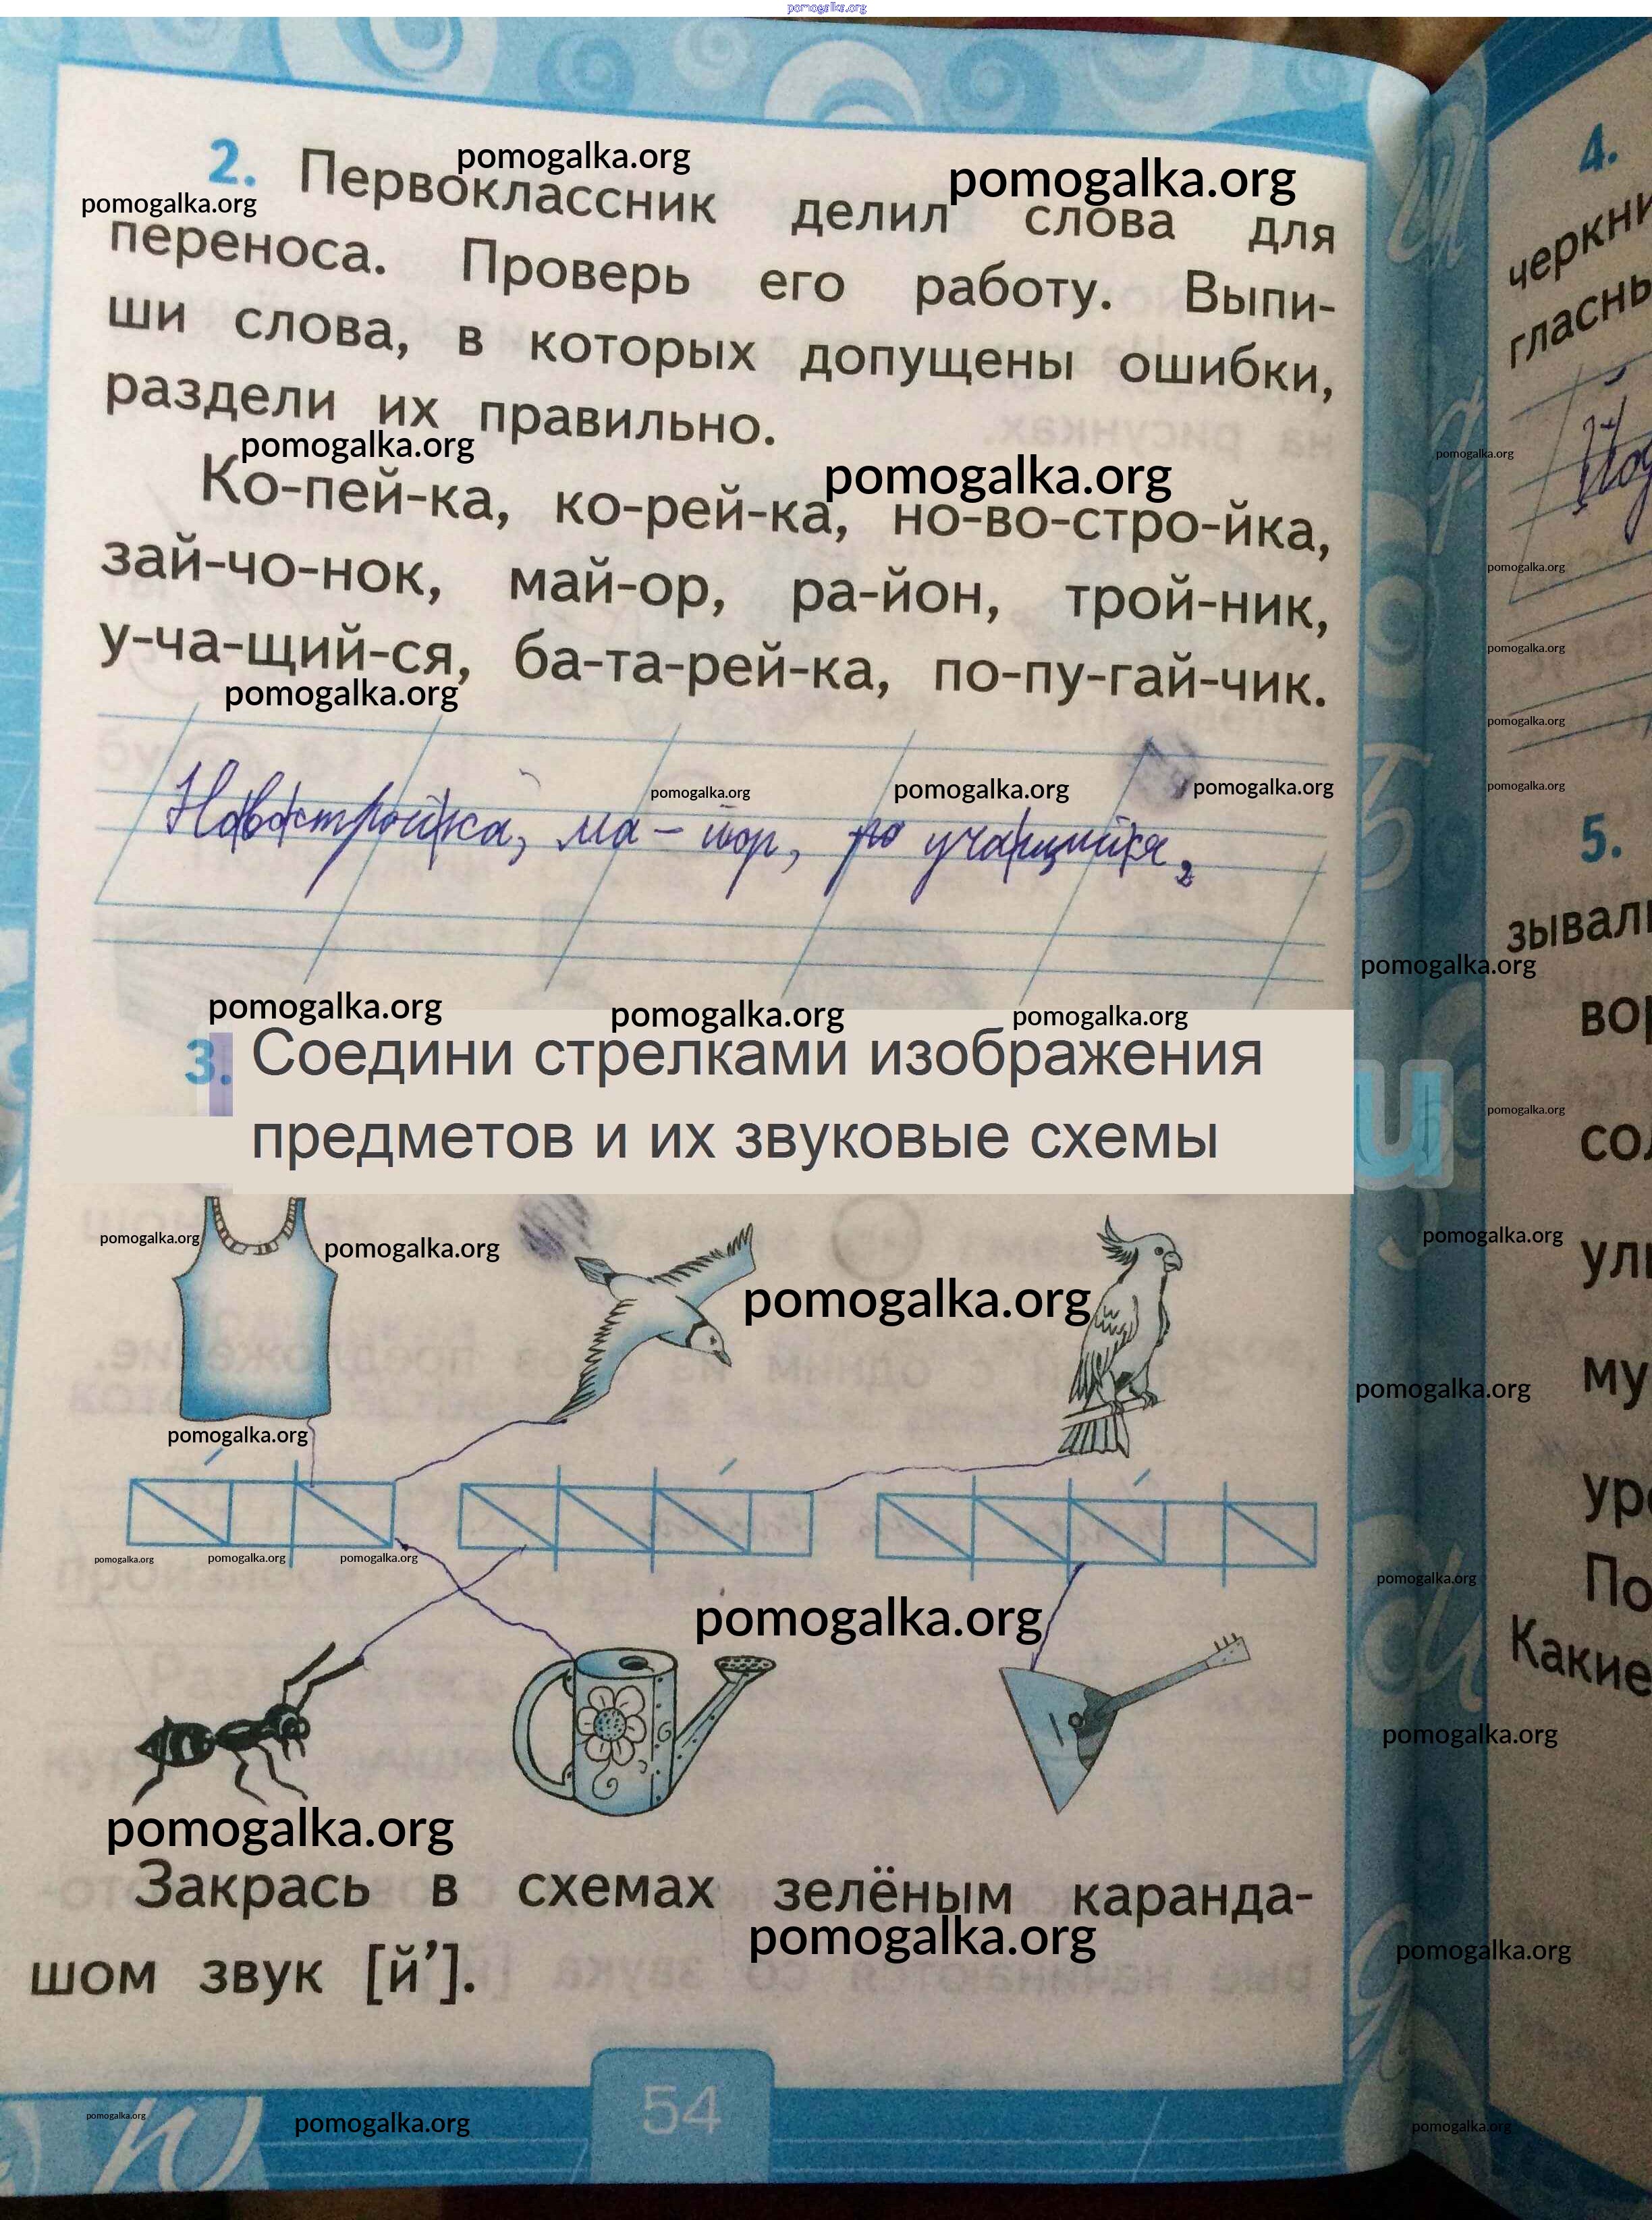 pomogalka.org
2. Первоклассник делил слова для
переноса. Проверь его работу. Выпи-
ши слова, в которых допущены ошибки,
раздели их правильно.
Ко-пей-ка, ко-рей-ка, но-во-стро-йка,
зай-чо-нок, май-ор, ра-йон, трой-ник,
у-ча-щий-ся, ба-та-рей-ка, по-пу-гай-чик.
Новостройка, ма-йор, учащийся,
3. Соедини стрелками изображения
предметов и их звуковые схемы
Закрась в схемах зелёным каранда-
шом звук [й’].
54
4.
черкни
гласны
5.
зывал
вор
сол
ули
му
уро
По
Какие